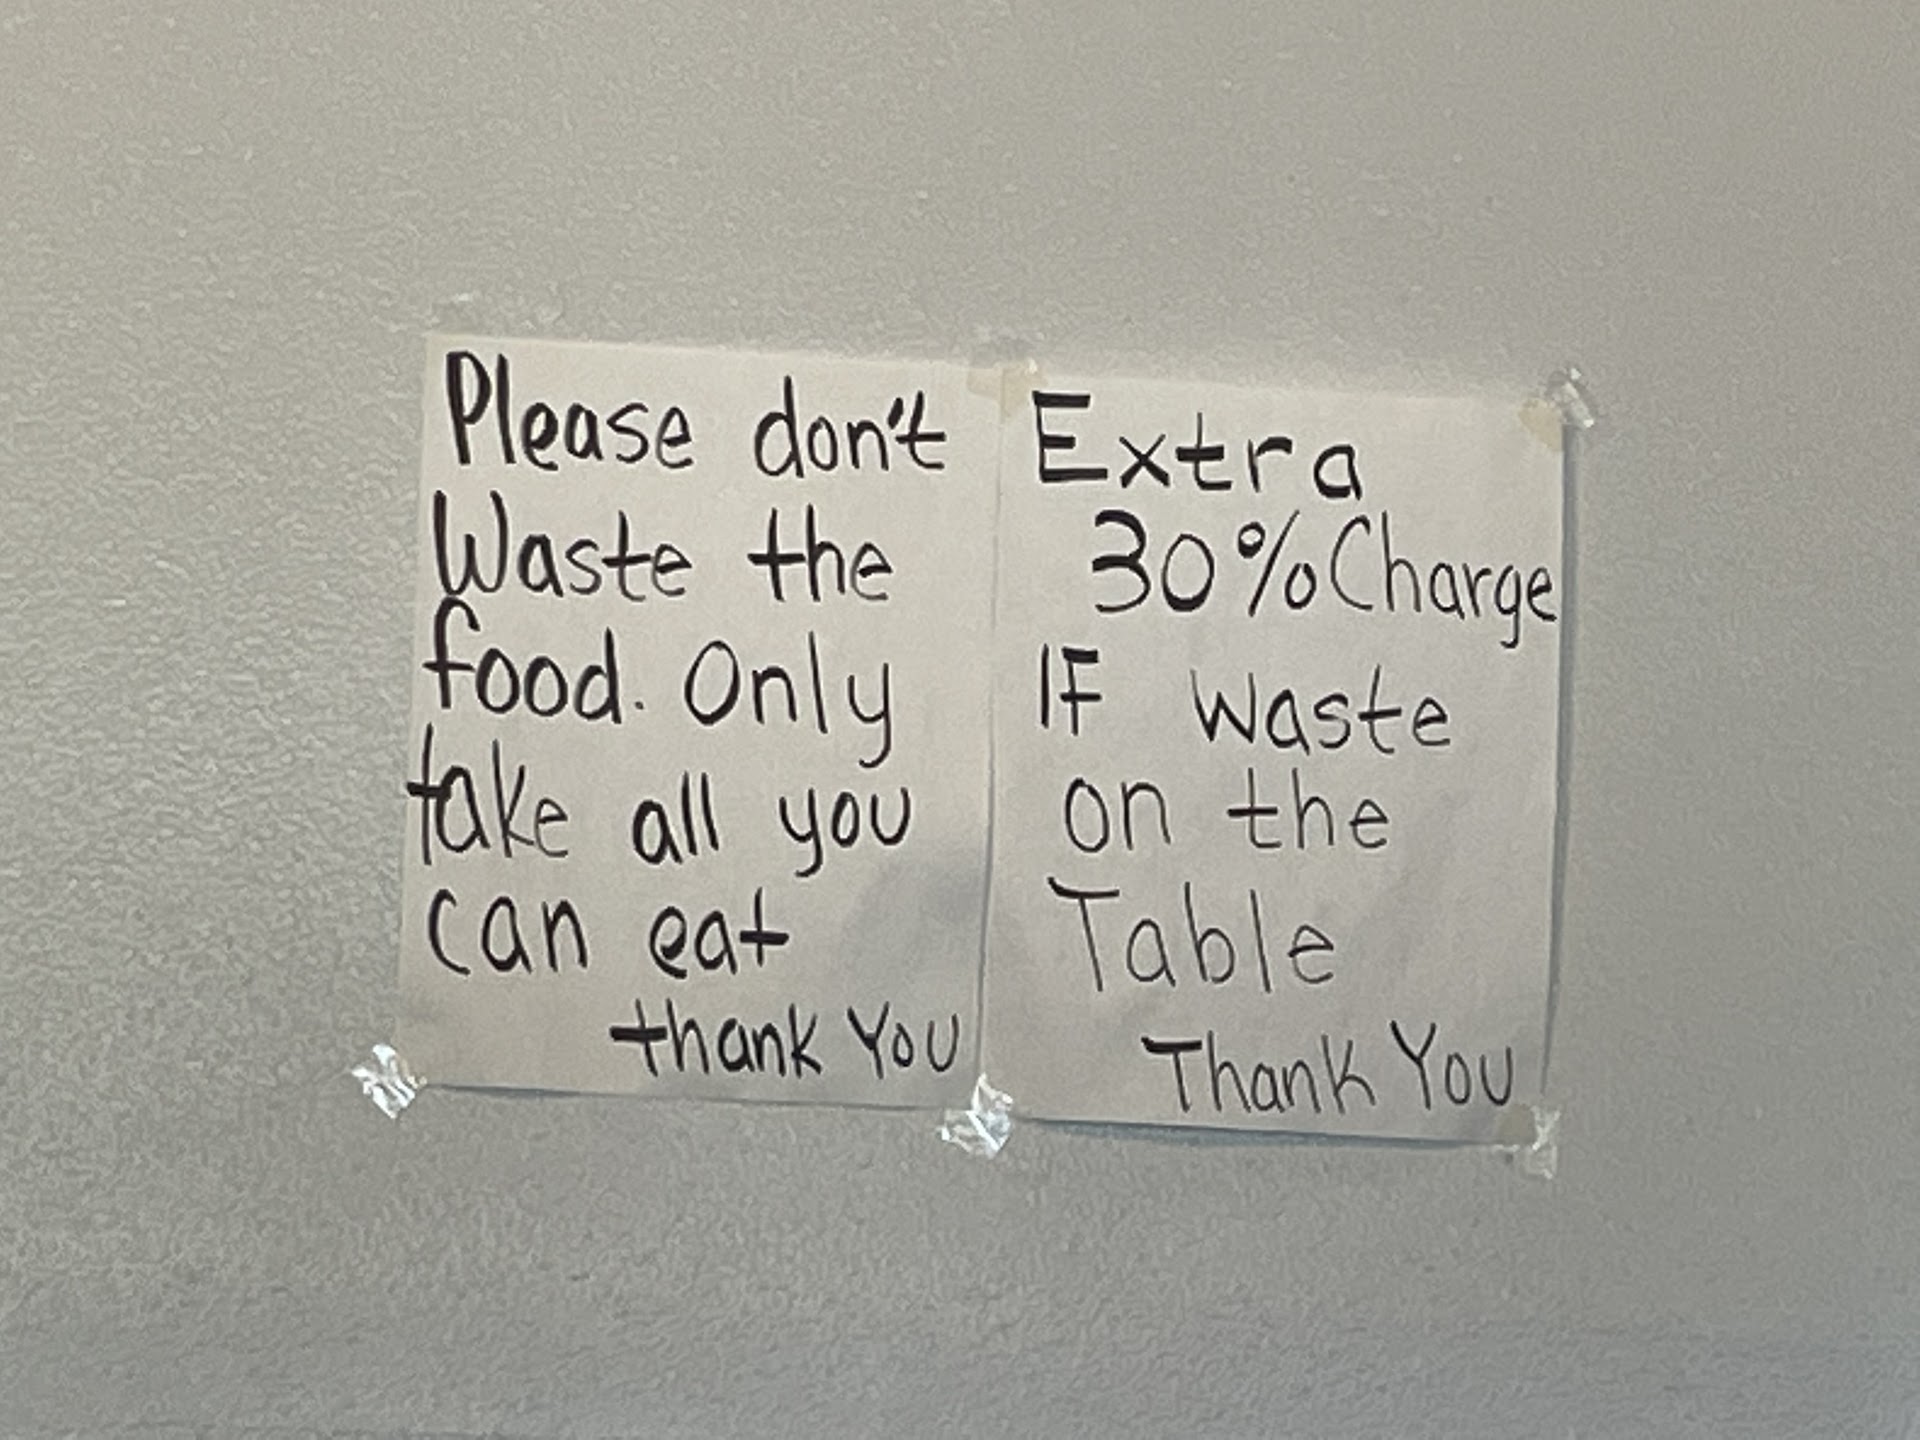 Please don't
Waste the
food. Only
take all you
can eat
thank You
Extra
30% Charge
IF waste
on the
Table
Thank You